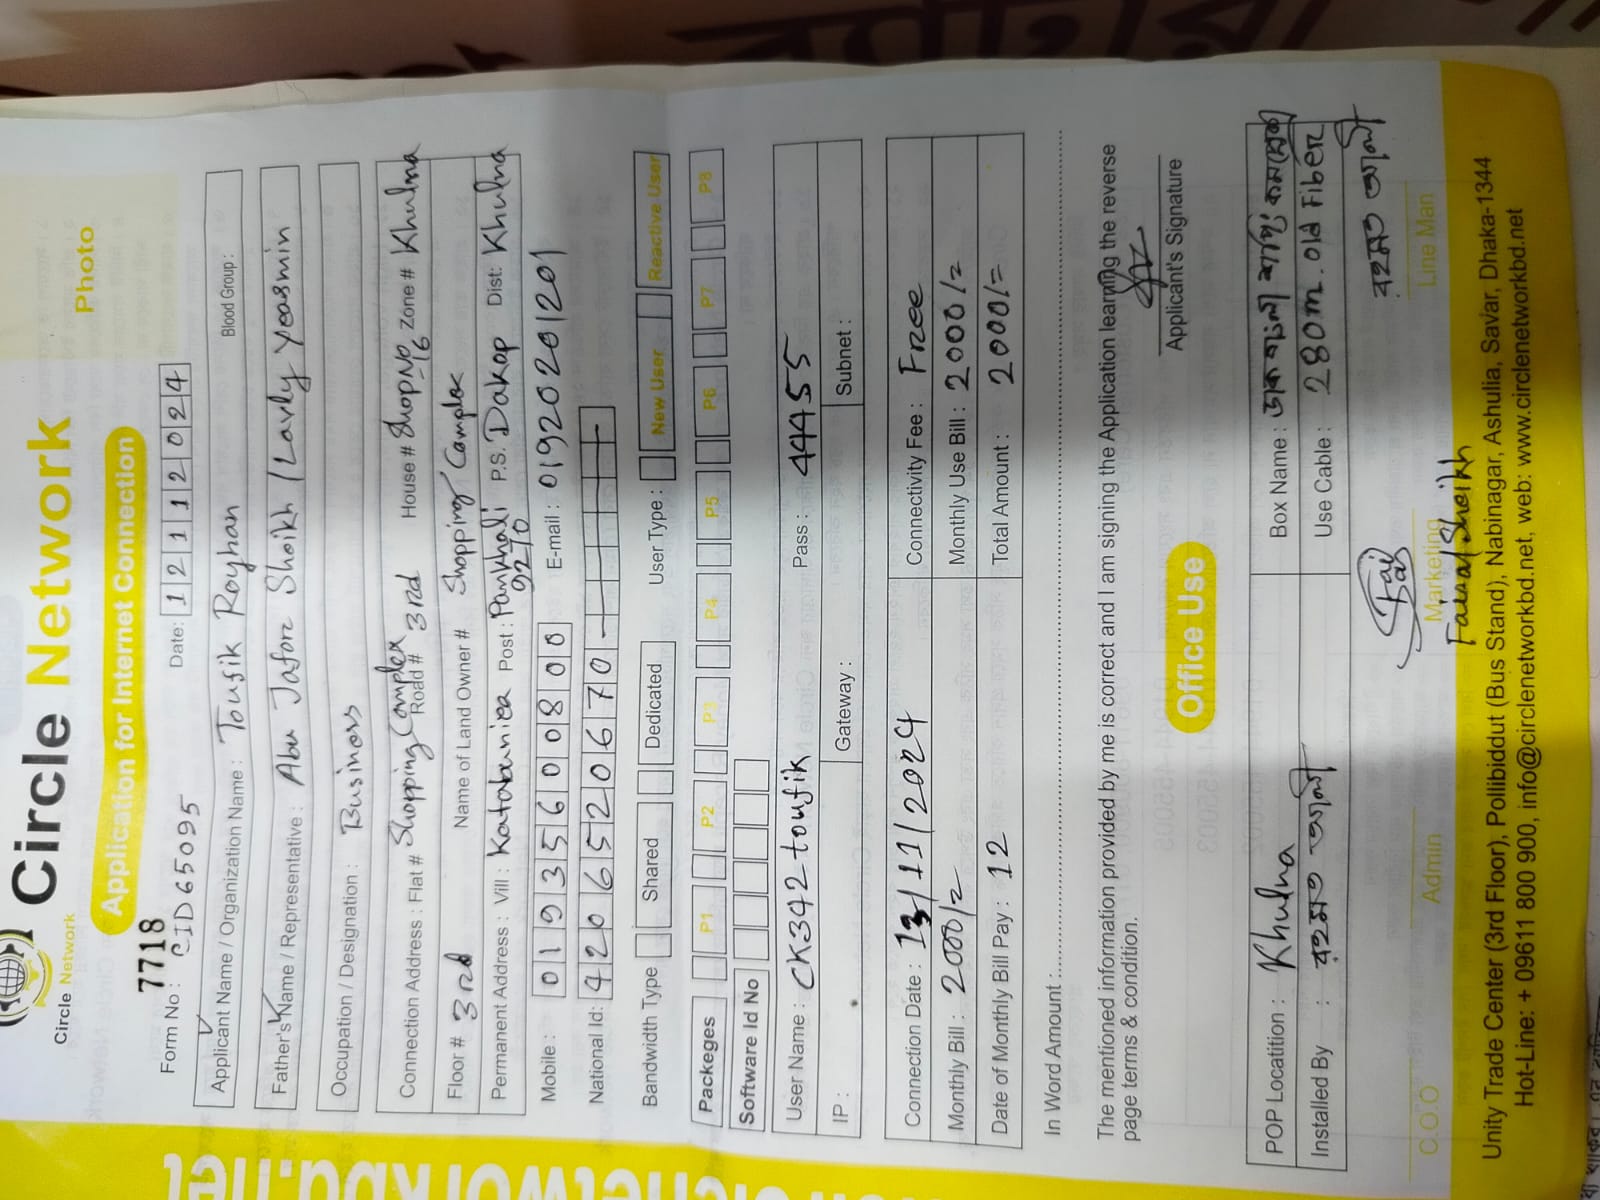 Circle Network
Circle Network
Photo
Application for Internet Connection
7718
Form No : CID65095 Date: 12112024
Applicant Name / Organization Name : Toufik Rayhan Blood Group :
Father's Name / Representative : Abu Jafore Sheikh / Lavly Yeasmin
Occupation / Designation : Business
Connection Address : Flat # Shopping Complex Road # 3rd House # ShopNo -16 Zone # Khulna
Floor # 3rd Name of Land Owner # Shopping Complex
Permanent Address : Vill : Katabaniea Post : Pankhali 9270 P.S. Dakop Dist: Khulna
Mobile : 01935600800 E-mail : 01920201201
National Id: 4206520670
Bandwidth Type Shared Dedicated User Type : New User Reactive User
Packeges P1 P2 P3 P4 P5 P6 P7 P8
Software Id No
User Name : CK342toufik Pass : 44455
IP : Gateway : Subnet :
Connection Date : 13/11/2024 Connectivity Fee : Free
Monthly Bill : 2000/= Monthly Use Bill : 2000/=
Date of Monthly Bill Pay : 12 Total Amount : 2000/=
In Word Amount :
The mentioned information provided by me is correct and I am signing the Application learning the reverse
page terms & condition.
Applicant's Signature
Office Use
POP Locatition : Khulna Box Name : ডাকবাংলা শপিং কমপ্লেক্স
Installed By : রহমত আলী Use Cable : 280m. old Fiber
রহমত আলী
C.O.O Admin Marketing Line Man
Faisal Sheikh
Unity Trade Center (3rd Floor), Pollibiddut (Bus Stand), Nabinagar, Ashulia, Savar, Dhaka-1344
Hot-Line: + 09611 800 900, info@circlenetworkbd.net, web: www.circlenetworkbd.net